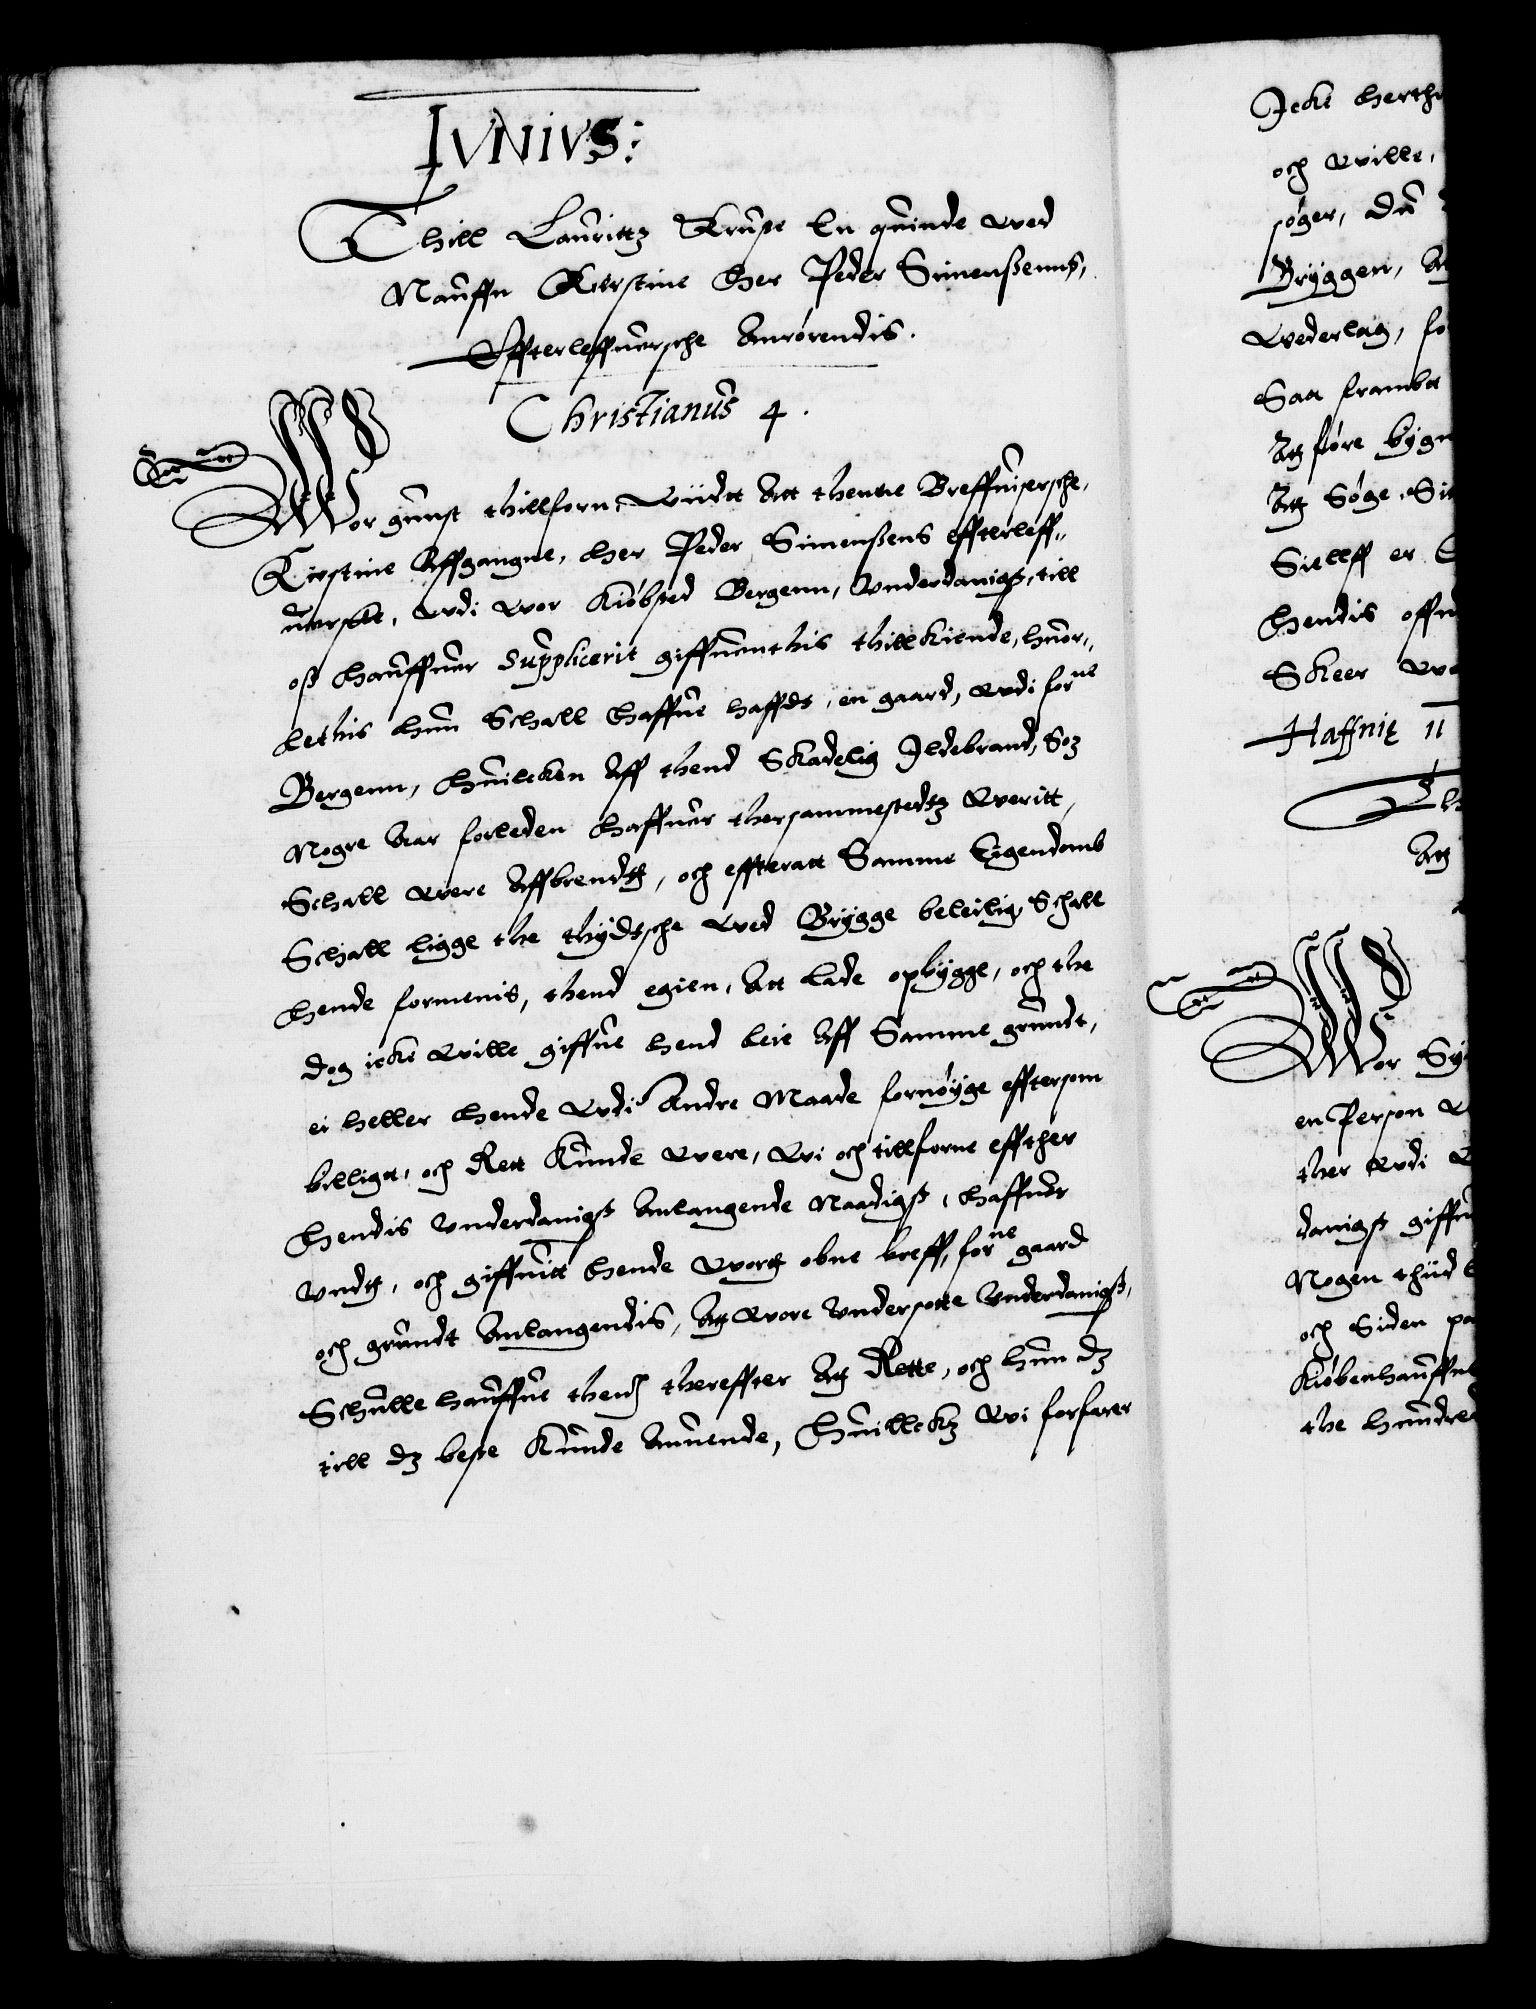 IVNIVS:
Thill Lauritz Kruse En quinde wed
Nauffn Kirstine Her Peder Simenßenns,
Effterleffuersche Anrørendis.
Christianus 4.
Wor gunst thillforn: Wiidtt Att thenne Breffuisersche,
Kirstine Affgangne, Her Peder Simenßens effterleff,,
uerske, wdi wor Kiøbsted Bergenn, Vnderdanigst, till
oß Hauffuer Supplicerit giffuenthis thillkiende, huor,,
lethis hun Schall Haffue hafft, en gaard, wdi forne
Bergenn, Huilcken Aff thend Skadelig Ildebrand, Som
Nogre Aar forleden Haffuer thersammestedtz Weritt,
Schall were Affbrendtt, och effteratt Samme Eigendomb
Schall ligge the thydtsche wed Brygge beleilig, Schall
Hende formenis, thend egien, Att lade opbygge, och the
dog icke wille giffue hend leie Aff Samme grundt,
ei heller Hende wdi Andre Maade fornøyge efftersom
billigt, och Rett Kunde were, wi och tillforne effther
Hendis Vnderdanigst Anlangende Naadigst, Haffuer
Vndtt, och giffuitt Hende wortt obne breff, forne gaard
och grundt Anlangendis, Att wore Vndersotte Vnderdanigst,
Schulle hauffue thend thereffter Att Rette, och hun dz
till dz beste Kunde Anuende, Huillckz wi forfarer
Icke
och wille,
søger,
Bryggen,
Wederlag,
Saa frambt
Att føre
Att Søge
Sielff er
Hendis
Skeer
Haffnię 11
Att
Wor
en Person
ther wdi
danigst
Nogen thiid
och Siden
the